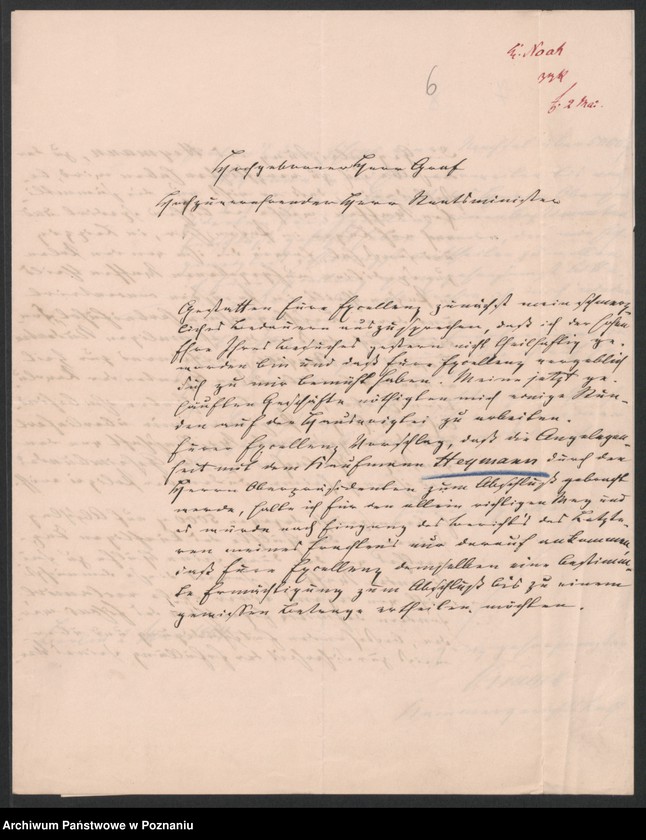 Noak
2 Mai
6
Hochgeborner Herr Graf
Hochzuverehrender Herr Staatsminister
Gestatten Eure Excellenz zunächst mein schmerz-
liches Bedauern auszusprechen, daß ich der hohen
Ehre Ihres Besuches gestern nicht theilhaftig ge-
worden bin und daß Eure Excellenz vergeblich
sich zu mir bemüht haben. Meine jetzt ge-
häuften Geschäfte nöthigten mich einige Stun-
den auf der Hausvogtei zu arbeiten.
Eurer Excellenz Vorschlag, daß die Angelegen-
heit mit dem Kaufmann Heymann durch den
Herrn Oberpräsidenten zum Abschluß gebracht
werde, halte ich für den allein richtigen Weg und
es würde nach Eingang des Berichts des Letzte-
ren meines Erachtens nur darauf ankommen,
daß Eure Excellenz demselben eine bestimm-
te Ermächtigung zum Abschluß bis zu einem
gewissen Betrage ertheilen möchten.
Archiwum Państwowe w Poznaniu